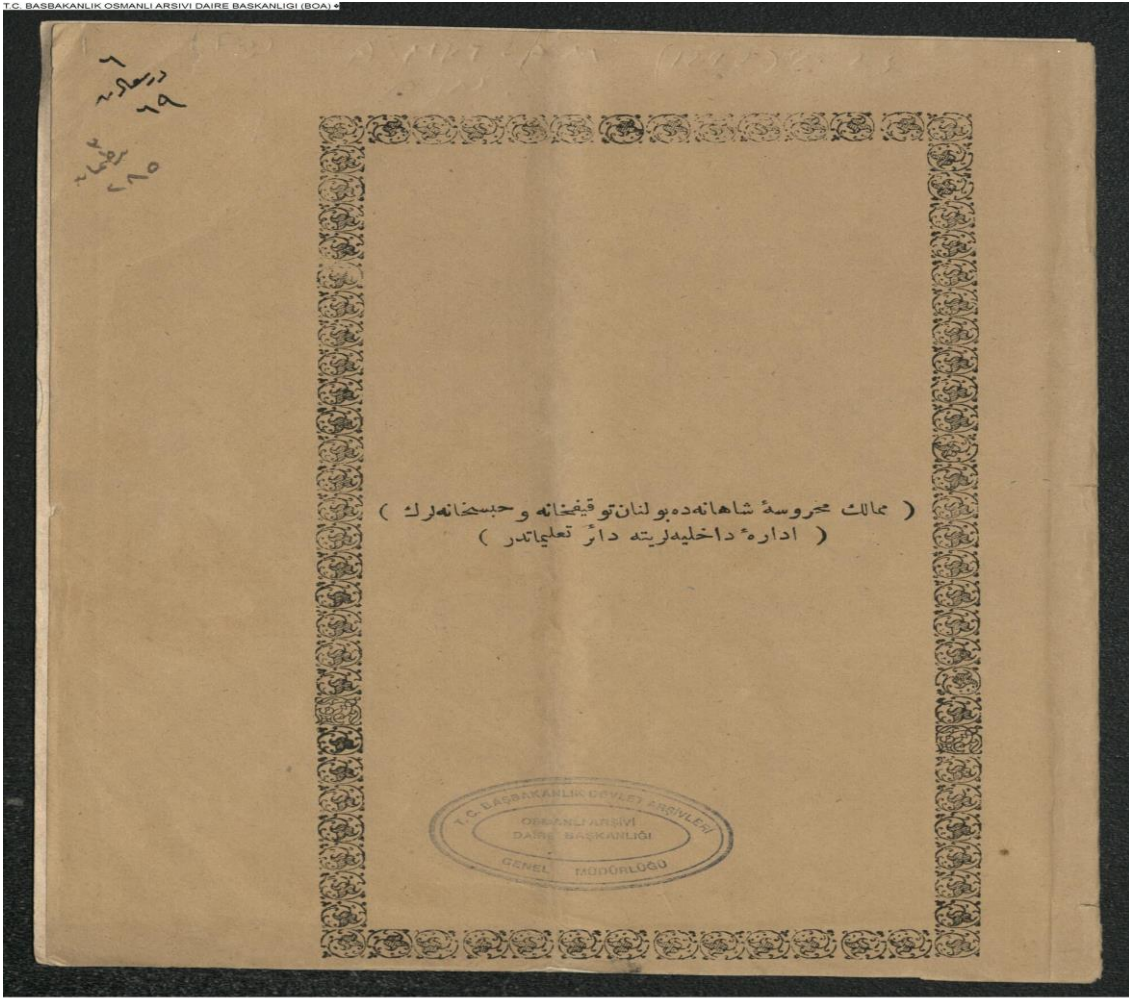 T.C. BASBAKANLIK OSMANLI ARSIVI DAIRE BASKANLIGI (BOA)
٦
درسعادت
٦٩
٢٨٥
( ممالك محروسهٔ شاهانه‌ده بولنان توقیفخانه و حبسخانه‌لرك )
( ادارهٔ داخلیه‌لرینه دائر تعلیماتدر )
T.C. BAŞBAKANLIK DEVLET ARŞİVLERİ
OSMANLI ARŞİVİ
DAİRE BAŞKANLIĞI
GENEL MÜDÜRLÜĞÜ